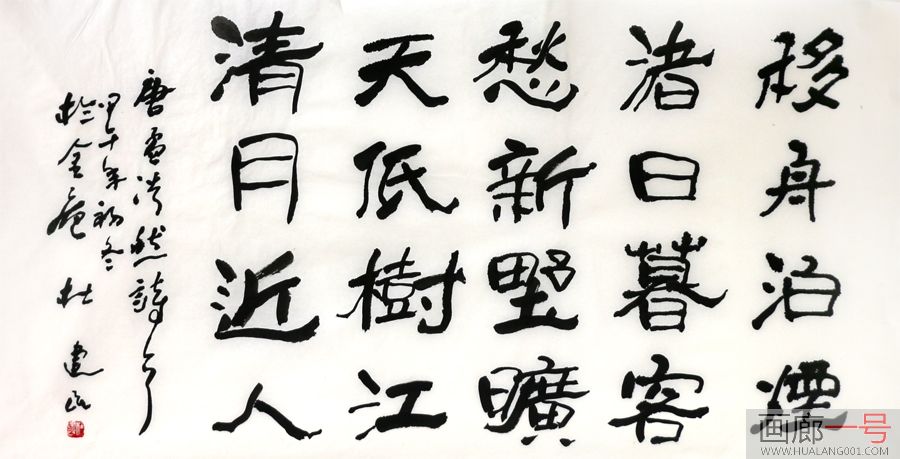 移舟泊煙
渚日暮客
愁新野曠
天低樹江
清月近人
唐孟浩然詩
甲午年初冬
於金庵 杜
画廊一号
WWW.HUALANG001.COM